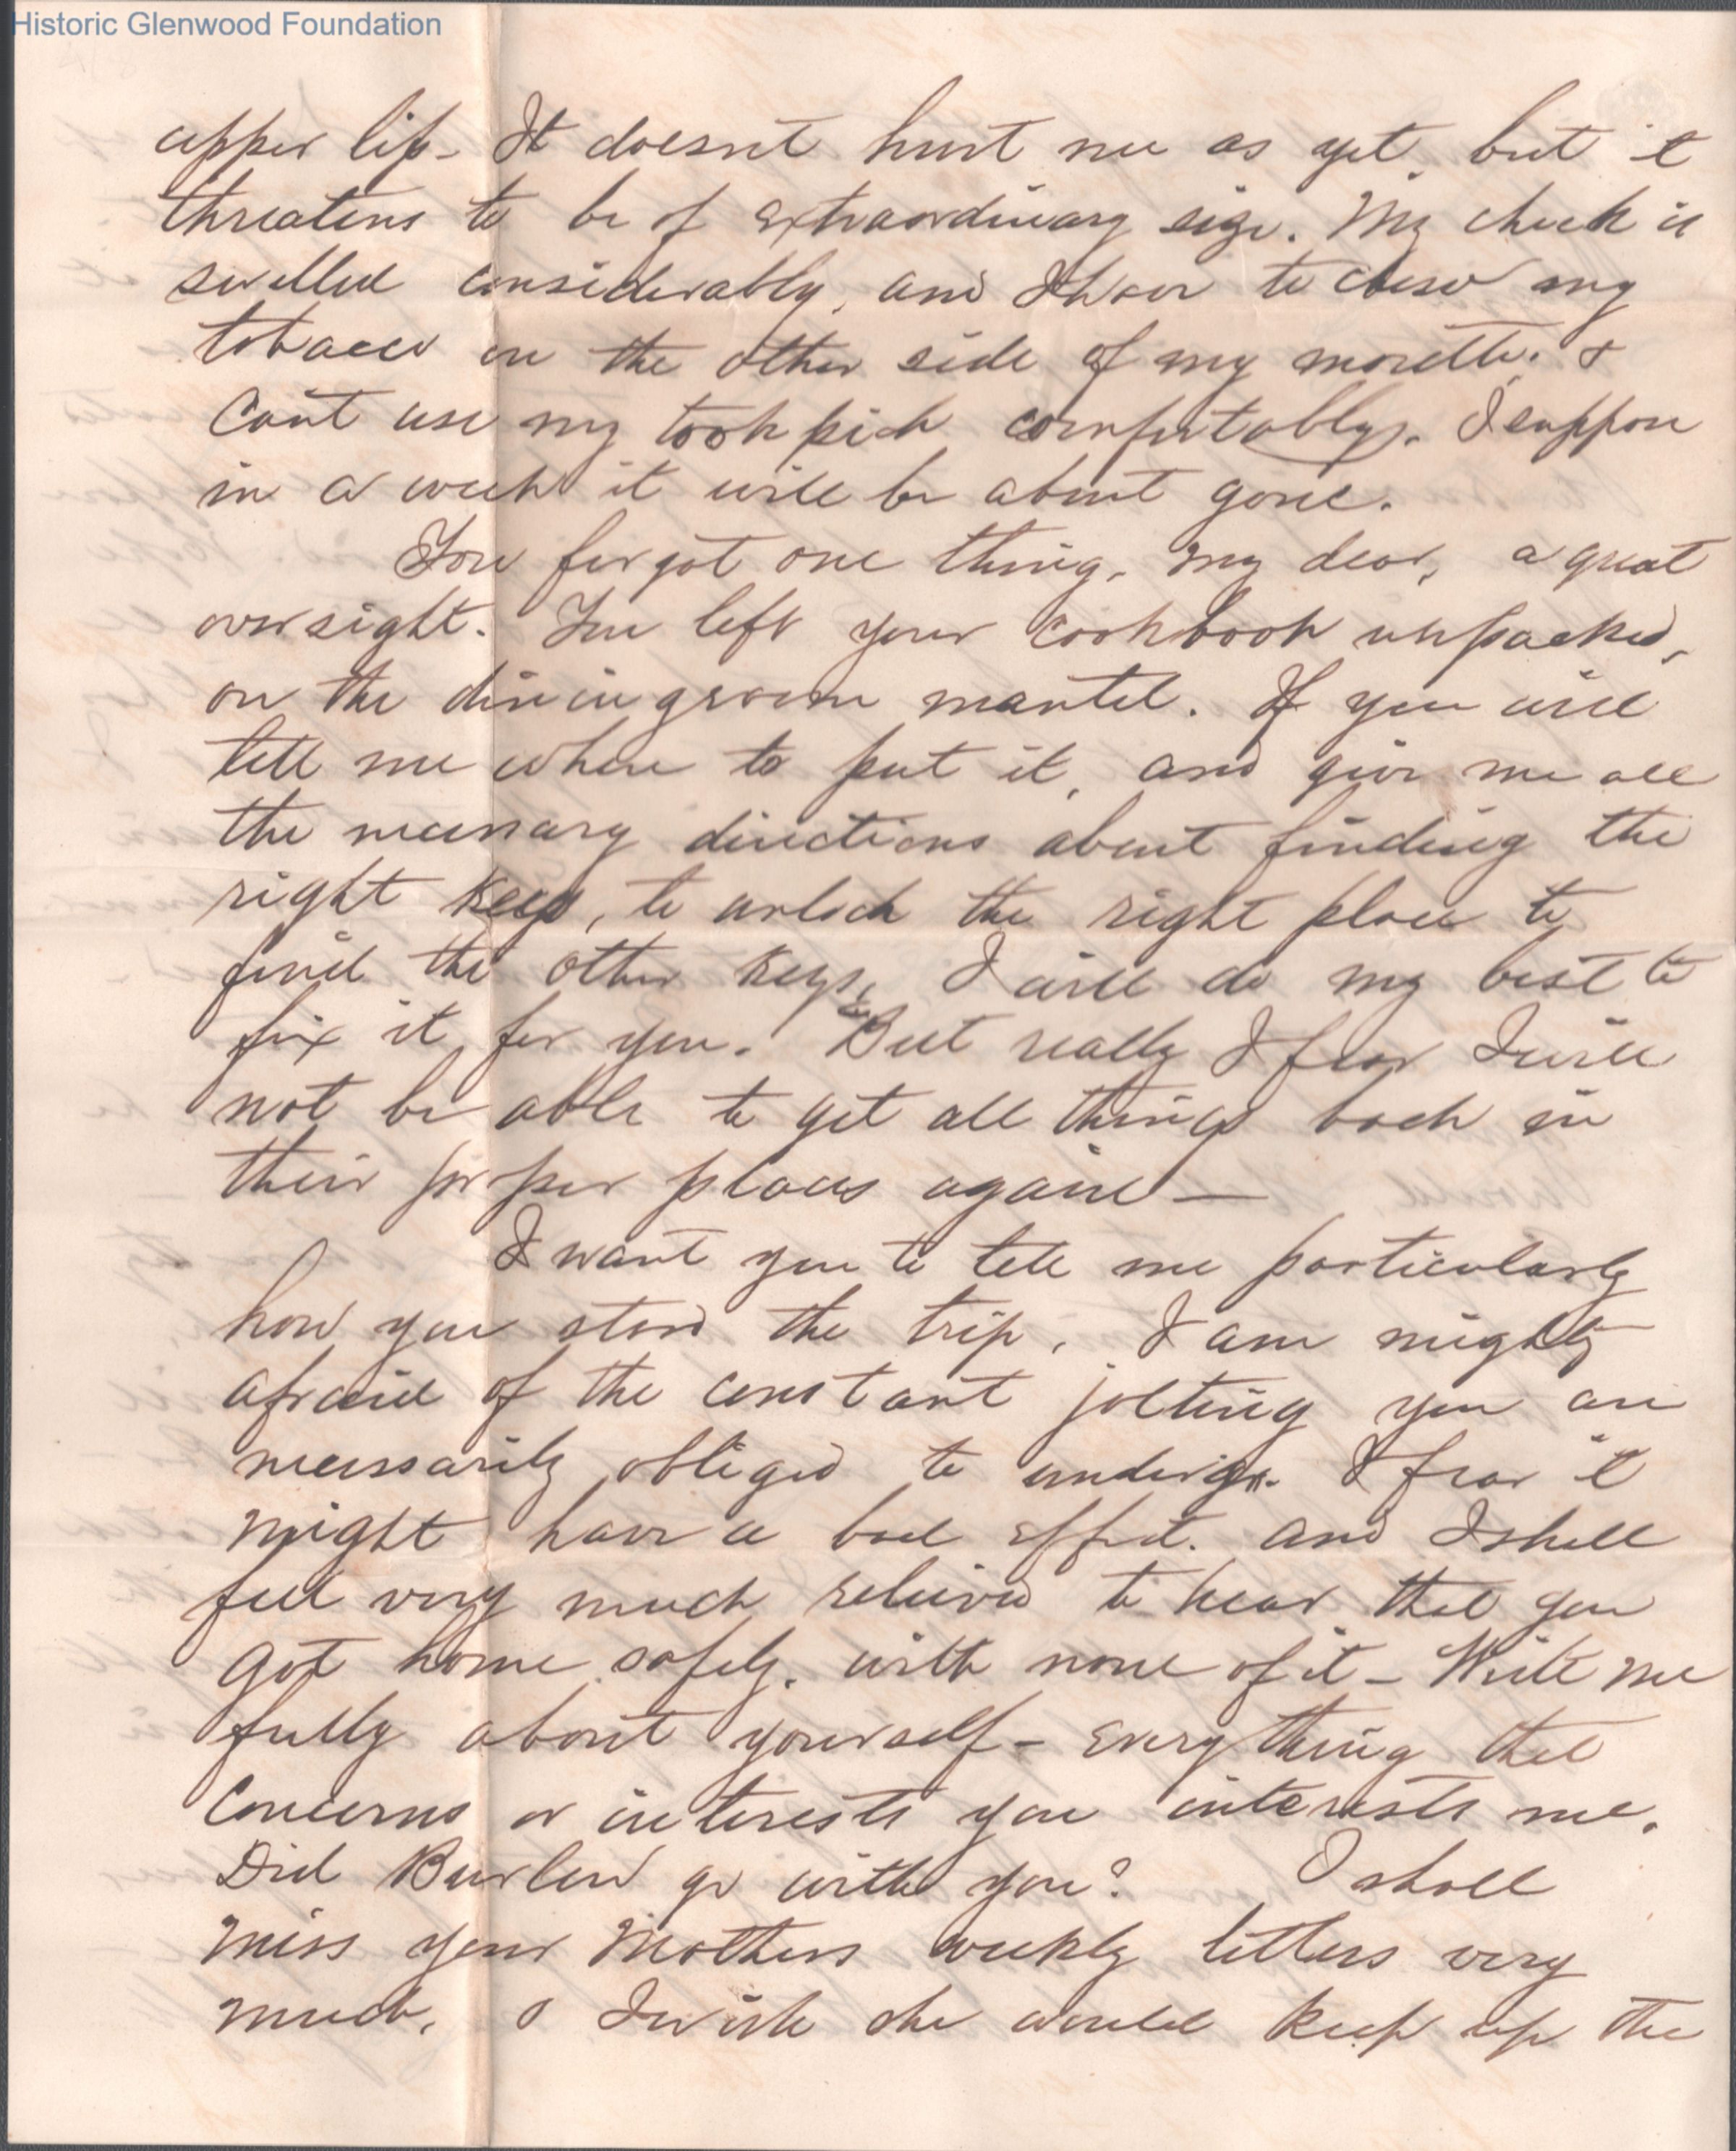 Historic Glenwood Foundation
upper lip - It doesn't hurt me as yet, but it
threatens to be of extraordinary size. My cheek is
swelled considerably, and I have to chew my
tobacco on the other side of my mouth. &
Can't use my toothpick comfortably. I suppose
in a week it will be about gone.
You forgot one thing, my dear, a great
oversight. You left your cookbook unpacked,
on the diningroom mantel. If you will
tell me where to put it, and give me all
the necessary directions about finding the
right keys, to unlock the right place to
find the other keys, I will do my best to
fix it for you. But really I fear I will
not be able to get all things back in
their proper places again —
I want you to tell me particularly
how you stood the trip. I am mighty
afraid of the constant jolting you are
necessarily obliged to undergo. I fear it
might have a bad effect. and I shall
feel very much relieved to hear that you
got home safely. with none of it - Write me
fully about yourself - everything that
concerns or interests you interests me.
Did go with you? I shall
miss your Mothers weekly letters very
much, & I wish she would keep up the